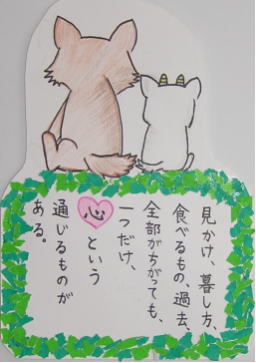 見かけ、暮し方、
食べるもの、過去、
全部がちがっても、
一つだけ、
心という
通じるものが
ある。